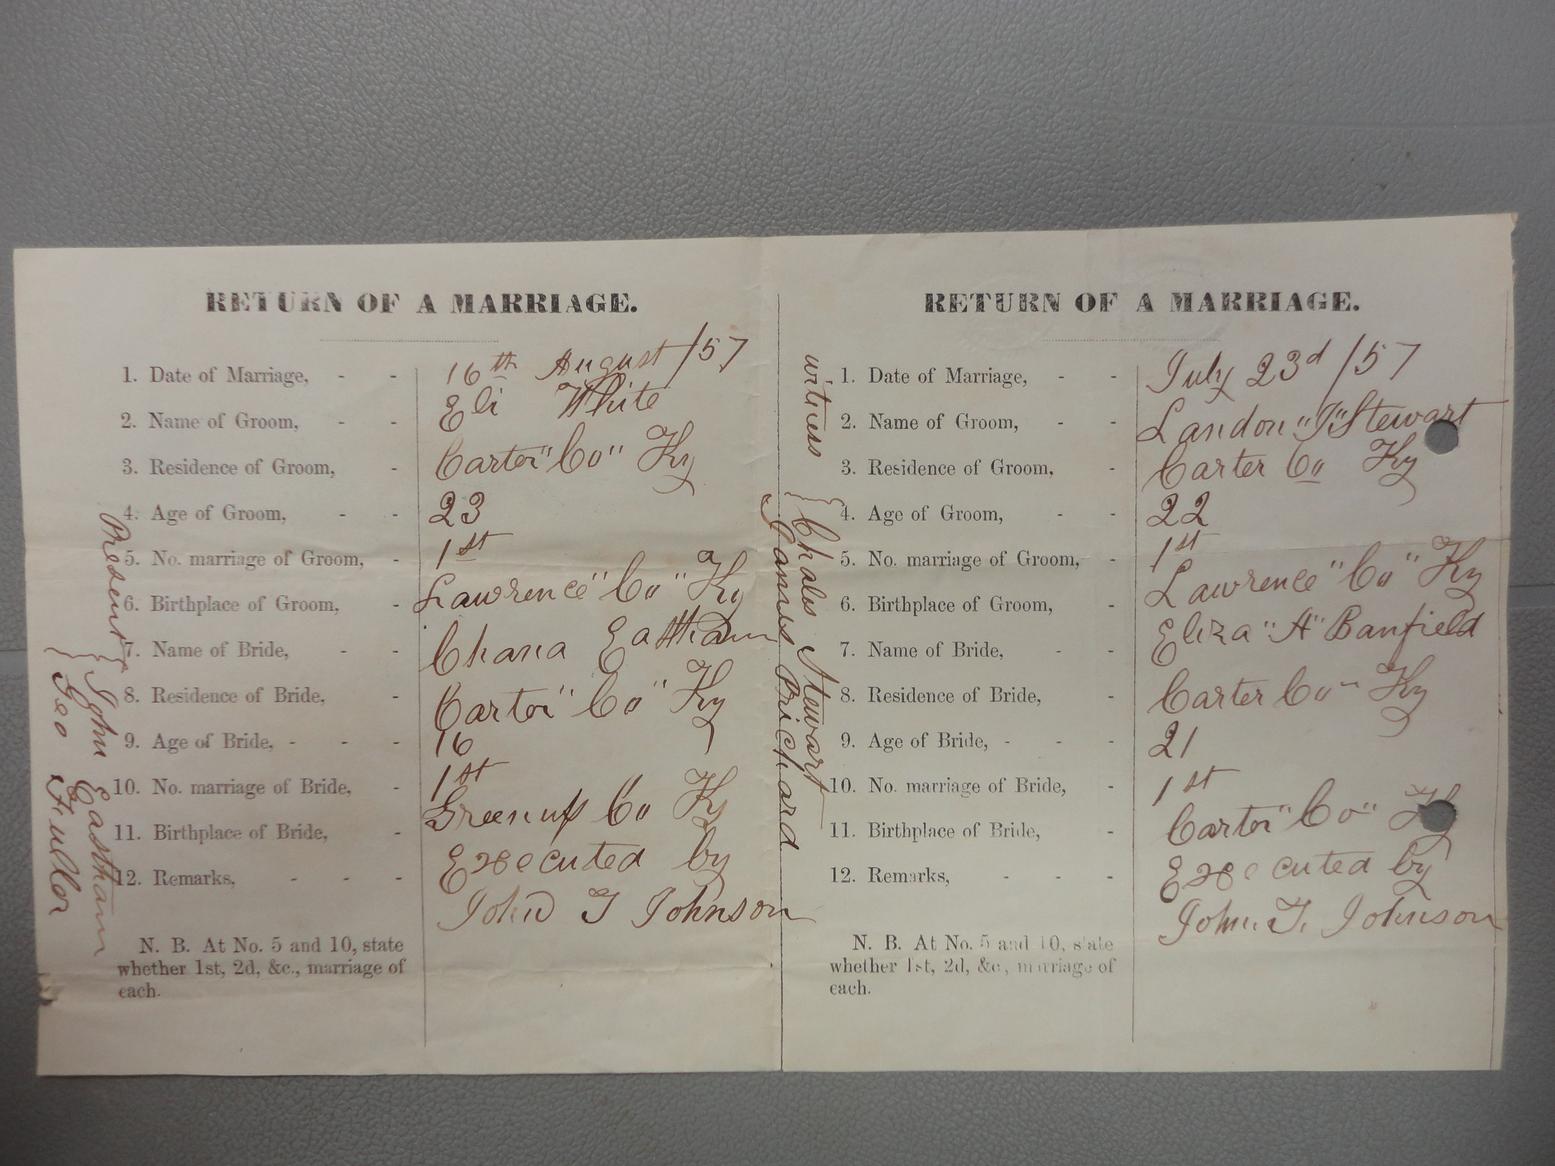 RETURN OF A MARRIAGE.
1. Date of Marriage, - - 16th August /57
2. Name of Groom, - - Eli White
3. Residence of Groom, - Carter "Co" Ky
4. Age of Groom, - - 23
5. No. marriage of Groom, - 1st
6. Birthplace of Groom, - Lawrence "Co" Ky
7. Name of Bride, - - Chana Eastham
8. Residence of Bride, - Carter "Co" Ky
9. Age of Bride, - - - 16
10. No. marriage of Bride, - 1st
11. Birthplace of Bride, - Greenup Co Ky
12. Remarks, - - - Executed by
John T Johnson
N. B. At No. 5 and 10, state
whether 1st, 2d, &c., marriage of
each.
Present
John Eastham
Geo Fuller
RETURN OF A MARRIAGE.
1. Date of Marriage, - - July 23d /57
2. Name of Groom, - - Landon "J" Stewart
3. Residence of Groom, - Carter Co Ky
4. Age of Groom, - - 22
5. No. marriage of Groom, - 1st
6. Birthplace of Groom, - Lawrence "Co" Ky
7. Name of Bride, - - Eliza "A" Banfield
8. Residence of Bride, - Carter Co" Ky
9. Age of Bride, - - - 21
10. No. marriage of Bride, - 1st
11. Birthplace of Bride, - Carter "Co" Ky
12. Remarks, - - - Executed by
John. T. Johnson
N. B. At No. 5 and 10, state
whether 1st, 2d, &c., marriage of
each.
witness
Chales Stewart
James Prichard